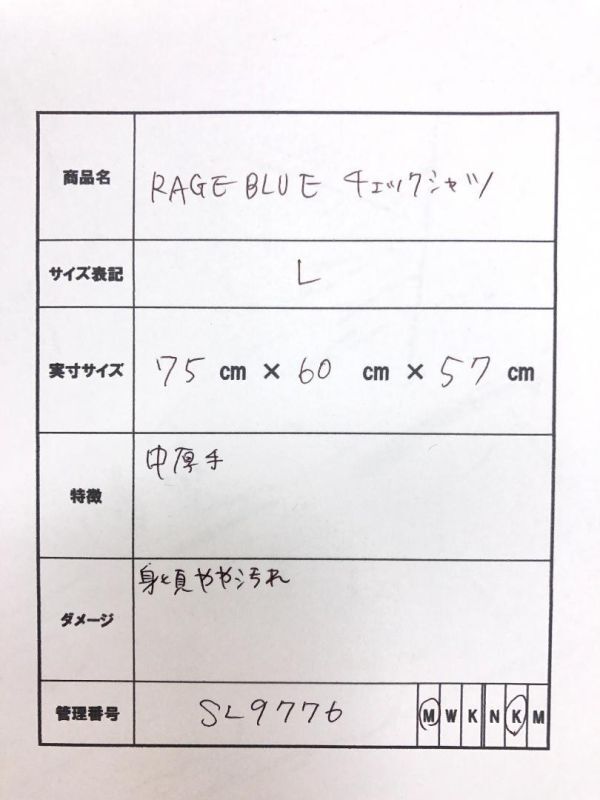 商品名 RAGE BLUE チェックシャツ
サイズ表記 L
実寸サイズ 75 cm × 60 cm × 57 cm
特徴 中厚手
ダメージ 身頃やや汚れ
管理番号 SL9776 M W K N K M